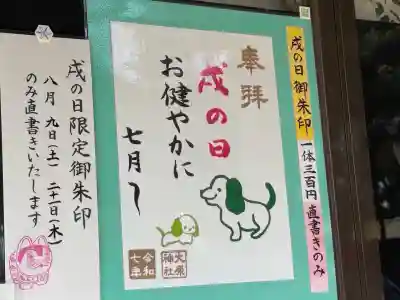 戌の日御朱印
一体三百円
直書きのみ
奉拝
戌の日
お健やかに
七月〜
大原
神社
令和
七年
戌の日限定御朱印
八月 九日(土) 二十一日(木)
のみ直書きいたします